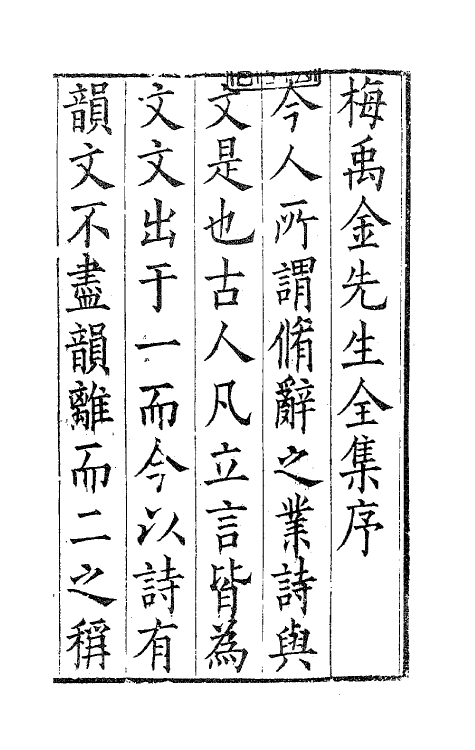 梅禹金先生全集序
今人所謂脩辭之業詩與
文是也古人凡立言皆為
文文出于一而今以詩有
韻文不盡韻離而二之稱